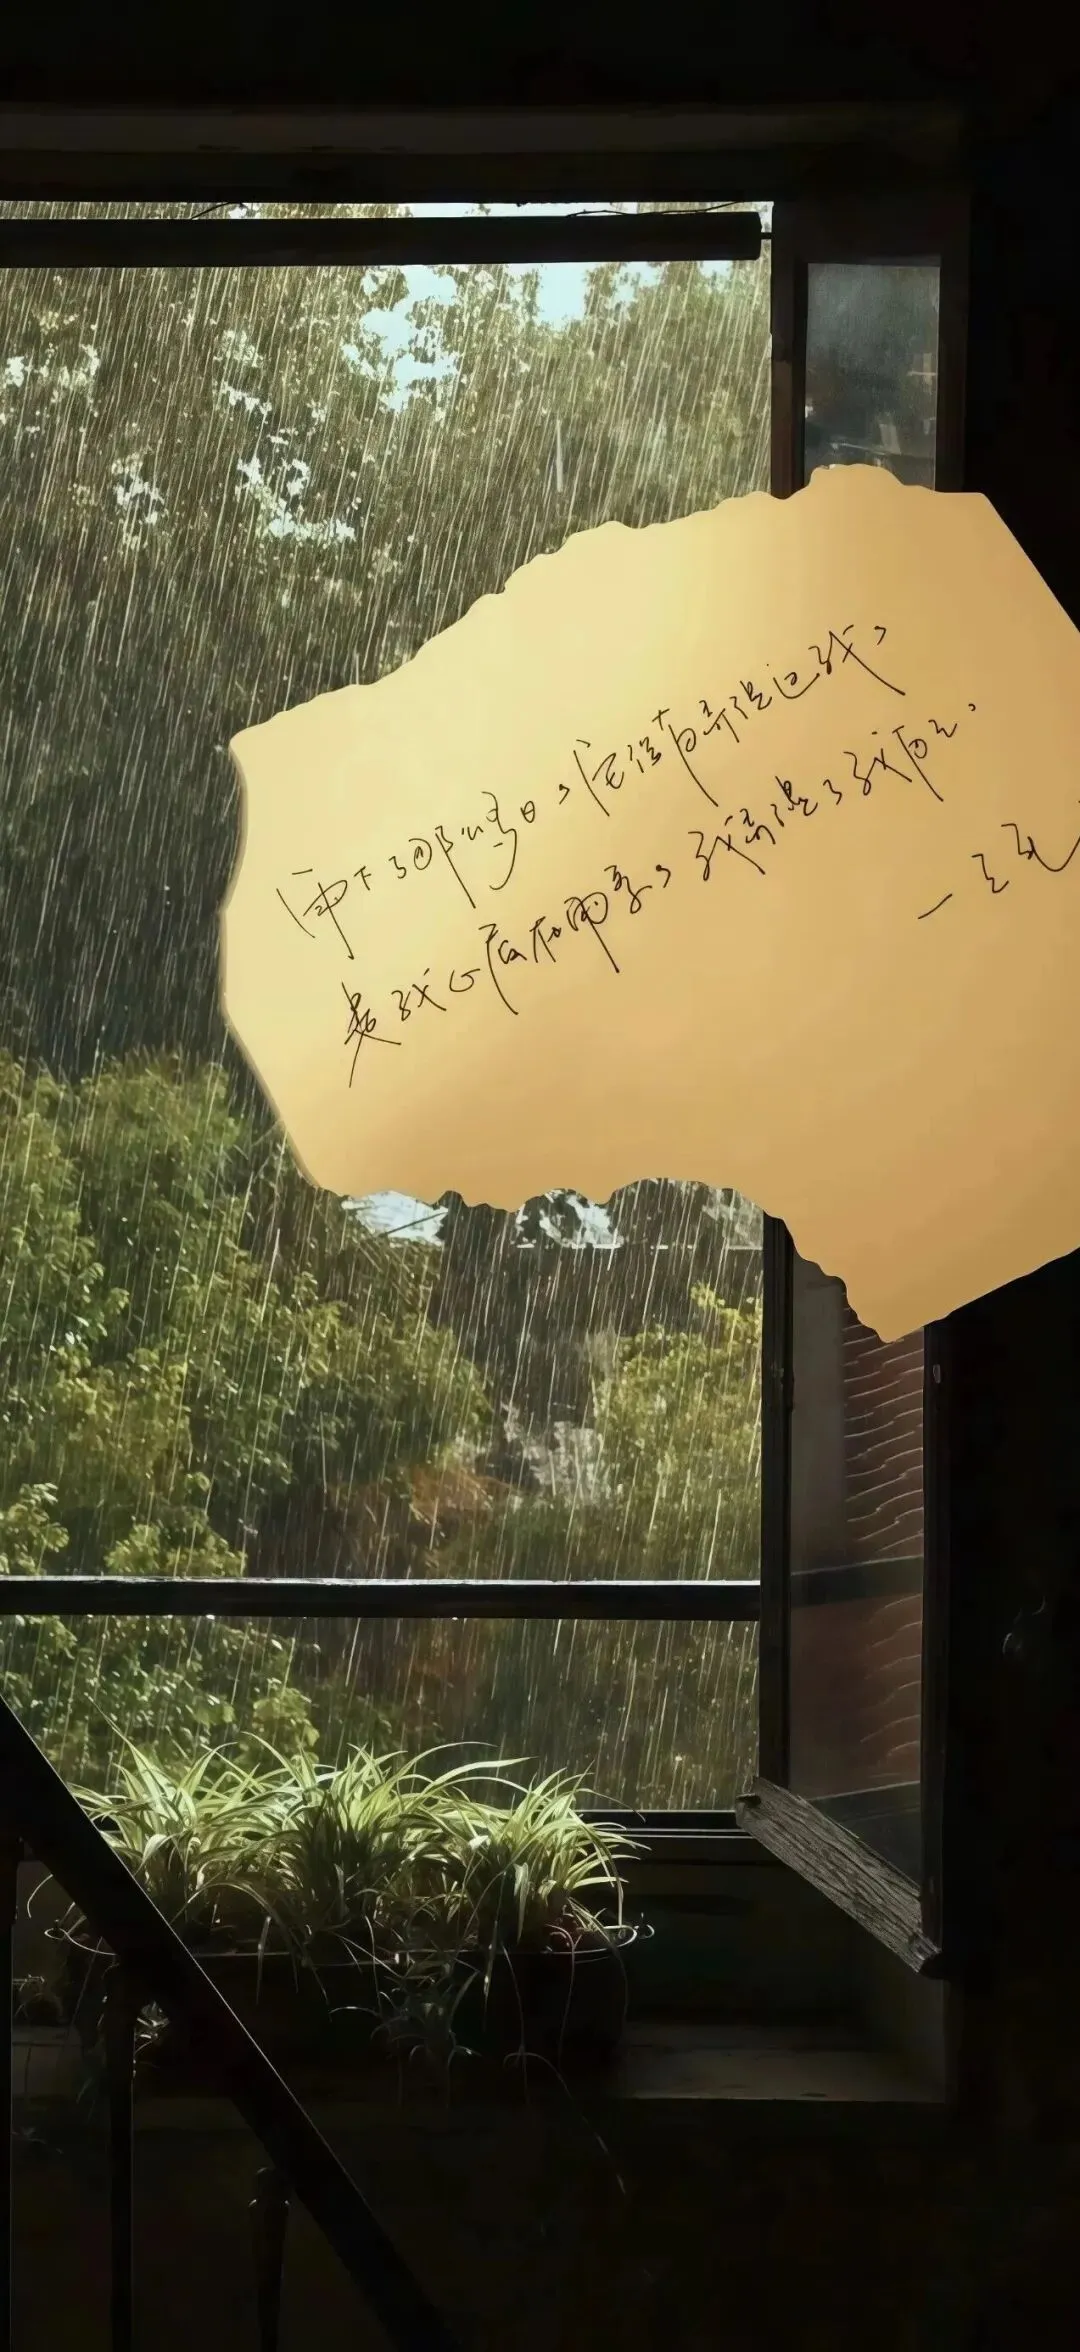 雨下了那么多日，它没有弄湿过我，
是我心底在雨季，我弄湿了我自己。
—三毛